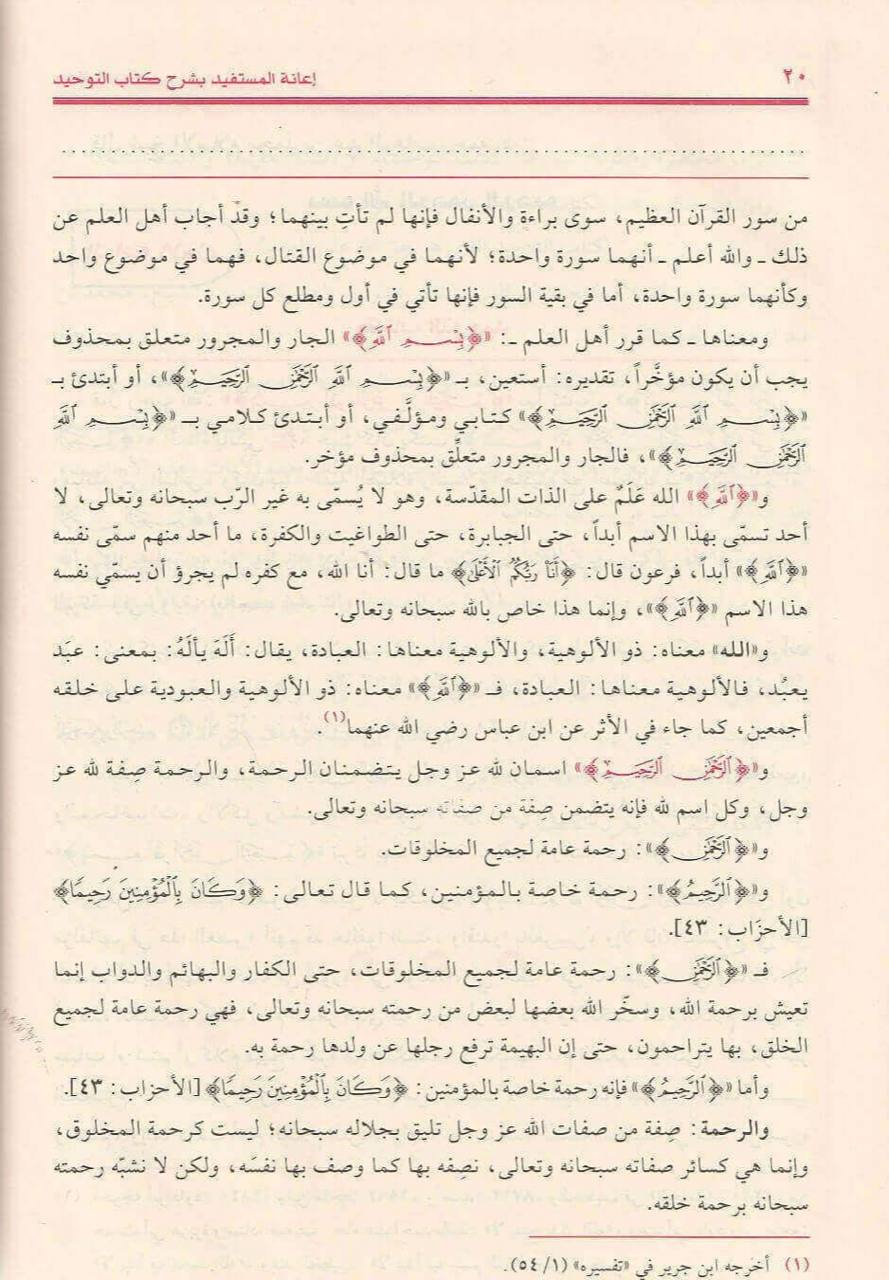 ٢٠ إعانة المستفيد بشرح كتاب التوحيد
من سور القرآن العظيم، سوى براءة والأنفال فإنها لم تأتِ بينهما؛ وقد أجاب أهل العلم عن
ذلك ـ والله أعلم ـ أنهما سورة واحدة؛ لأنهما في موضوع القتال، فهما في موضوع واحد
وكأنهما سورة واحدة، أما في بقية السور فإنها تأتي في أول ومطلع كل سورة.
ومعناها ـ كما قرر أهل العلم ـ: «﴿بِسْمِ ٱللَّهِ﴾» الجار والمجرور متعلق بمحذوف
يجب أن يكون مؤخَّراً، تقديره: أستعين، بـ «﴿بِسْمِ ٱللَّهِ ٱلرَّحْمَٰنِ ٱلرَّحِيمِ﴾»، أو أبتدئ بـ
«﴿بِسْمِ ٱللَّهِ ٱلرَّحْمَٰنِ ٱلرَّحِيمِ﴾» كتابي ومؤلَّفي، أو أبتدئ كلامي بـ «﴿بِسْمِ ٱللَّهِ
ٱلرَّحْمَٰنِ ٱلرَّحِيمِ﴾»، فالجار والمجرور متعلِّق بمحذوف مؤخر.
و«﴿ٱللَّهِ﴾» الله عَلَمٌ على الذات المقدّسة، وهو لا يُسمّى به غير الرّب سبحانه وتعالى، لا
أحد تسمّى بهذا الاسم أبداً، حتى الجبابرة، حتى الطواغيت والكفرة، ما أحد منهم سمّى نفسه
«﴿ٱللَّهِ﴾» أبداً، فرعون قال: ﴿أَنَا۠ رَبُّكُمُ ٱلْأَعْلَىٰ﴾ ما قال: أنا الله، مع كفره لم يجرؤ أن يسمّي نفسه
هذا الاسم «﴿ٱللَّهِ﴾»، وإنما هذا خاص بالله سبحانه وتعالى.
و«الله» معناه: ذو الألوهية، والألوهية معناها: العبادة، يقال: أَلَهَ يألَهُ: بمعنى: عبَد
يعبُد، فالألوهية معناها: العبادة، فـ «﴿ٱللَّهِ﴾» معناه: ذو الألوهية والعبودية على خلقه
أجمعين، كما جاء في الأثر عن ابن عباس رضي الله عنهما(١).
و«﴿ٱلرَّحْمَٰنِ ٱلرَّحِيمِ﴾» اسمان لله عز وجل يتضمنان الرحمة، والرحمة صِفة لله عز
وجل، وكل اسم لله فإنه يتضمن صِفة من صفاته سبحانه وتعالى.
و«﴿ٱلرَّحْمَٰنِ﴾»: رحمة عامة لجميع المخلوقات.
و«﴿ٱلرَّحِيمُ﴾»: رحمة خاصة بالمؤمنين، كما قال تعالى: ﴿وَكَانَ بِٱلْمُؤْمِنِينَ رَحِيمًا﴾
[الأحزَاب: ٤٣].
فـ «﴿ٱلرَّحْمَٰنِ﴾»: رحمة عامة لجميع المخلوقات، حتى الكفار والبهائم والدواب إنما
تعيش برحمة الله، وسخَّر الله بعضها لبعض من رحمته سبحانه وتعالى، فهي رحمة عامة لجميع
الخلق، بها يتراحمون، حتى إن البهيمة ترفع رجلها عن ولدها رحمة به.
وأما «﴿ٱلرَّحِيمُ﴾» فإنه رحمة خاصة بالمؤمنين: ﴿وَكَانَ بِٱلْمُؤْمِنِينَ رَحِيمًا﴾ [الأحزاب: ٤٣].
والرحمة: صِفة من صفات الله عز وجل تليق بجلاله سبحانه؛ ليست كرحمة المخلوق،
وإنما هي كسائر صفاته سبحانه وتعالى، نصِفه بها كما وصف بها نفسَه، ولكن لا نشبّه رحمته
سبحانه برحمة خلقه.
(١) أخرجه ابن جرير في «تفسيره» (١/ ٥٤).